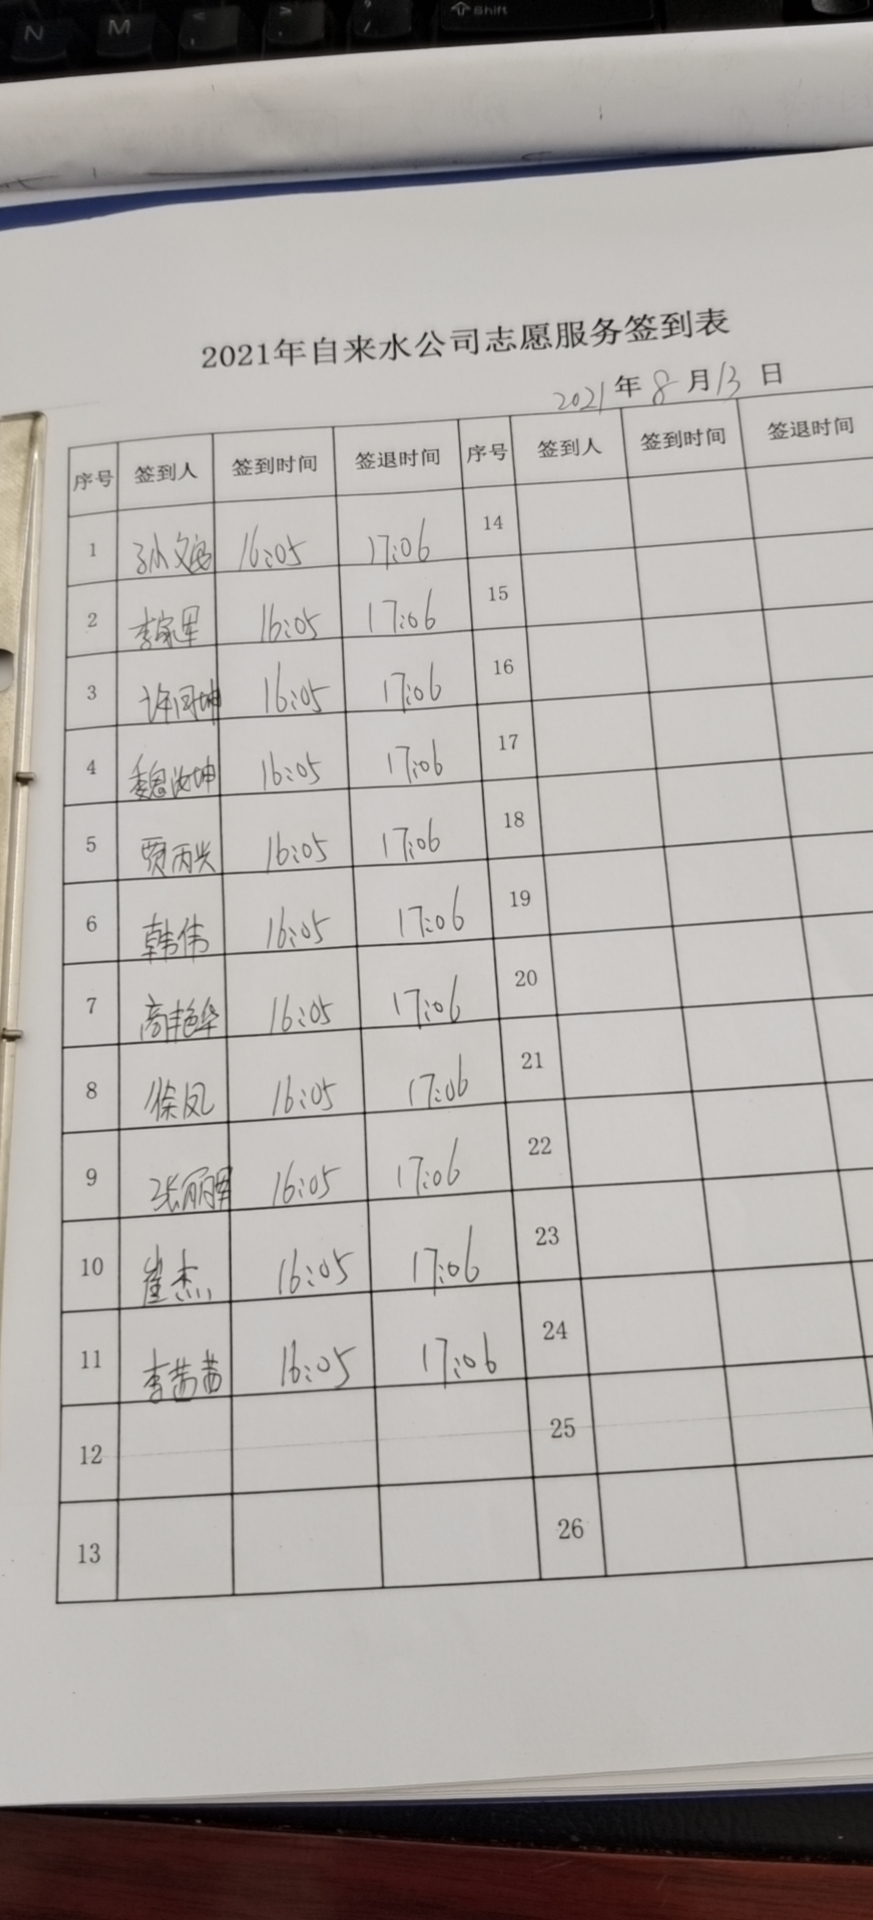 N M < , > . ? / ⇧Shift
2021年自来水公司志愿服务签到表
2021年8月13日
序号 签到人 签到时间 签退时间 序号 签到人 签到时间 签退时间
1 孙文 16:05 17:06 14
2 李家军 16:05 17:06 15
3 许同坤 16:05 17:06 16
4 魏汝坤 16:05 17:06 17
5 贾丙兴 16:05 17:06 18
6 韩伟 16:05 17:06 19
7 高艳华 16:05 17:06 20
8 徐凤 16:05 17:06 21
9 张丽军 16:05 17:06 22
10 崔杰 16:05 17:06 23
11 李茜茜 16:05 17:06 24
12 25
13 26